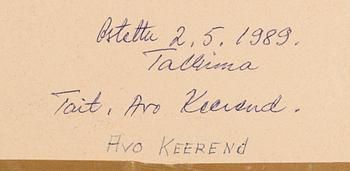 Ostettu 2.5.1989.
Tallinna
Tait. Avo Keerend.
AVO KEEREND